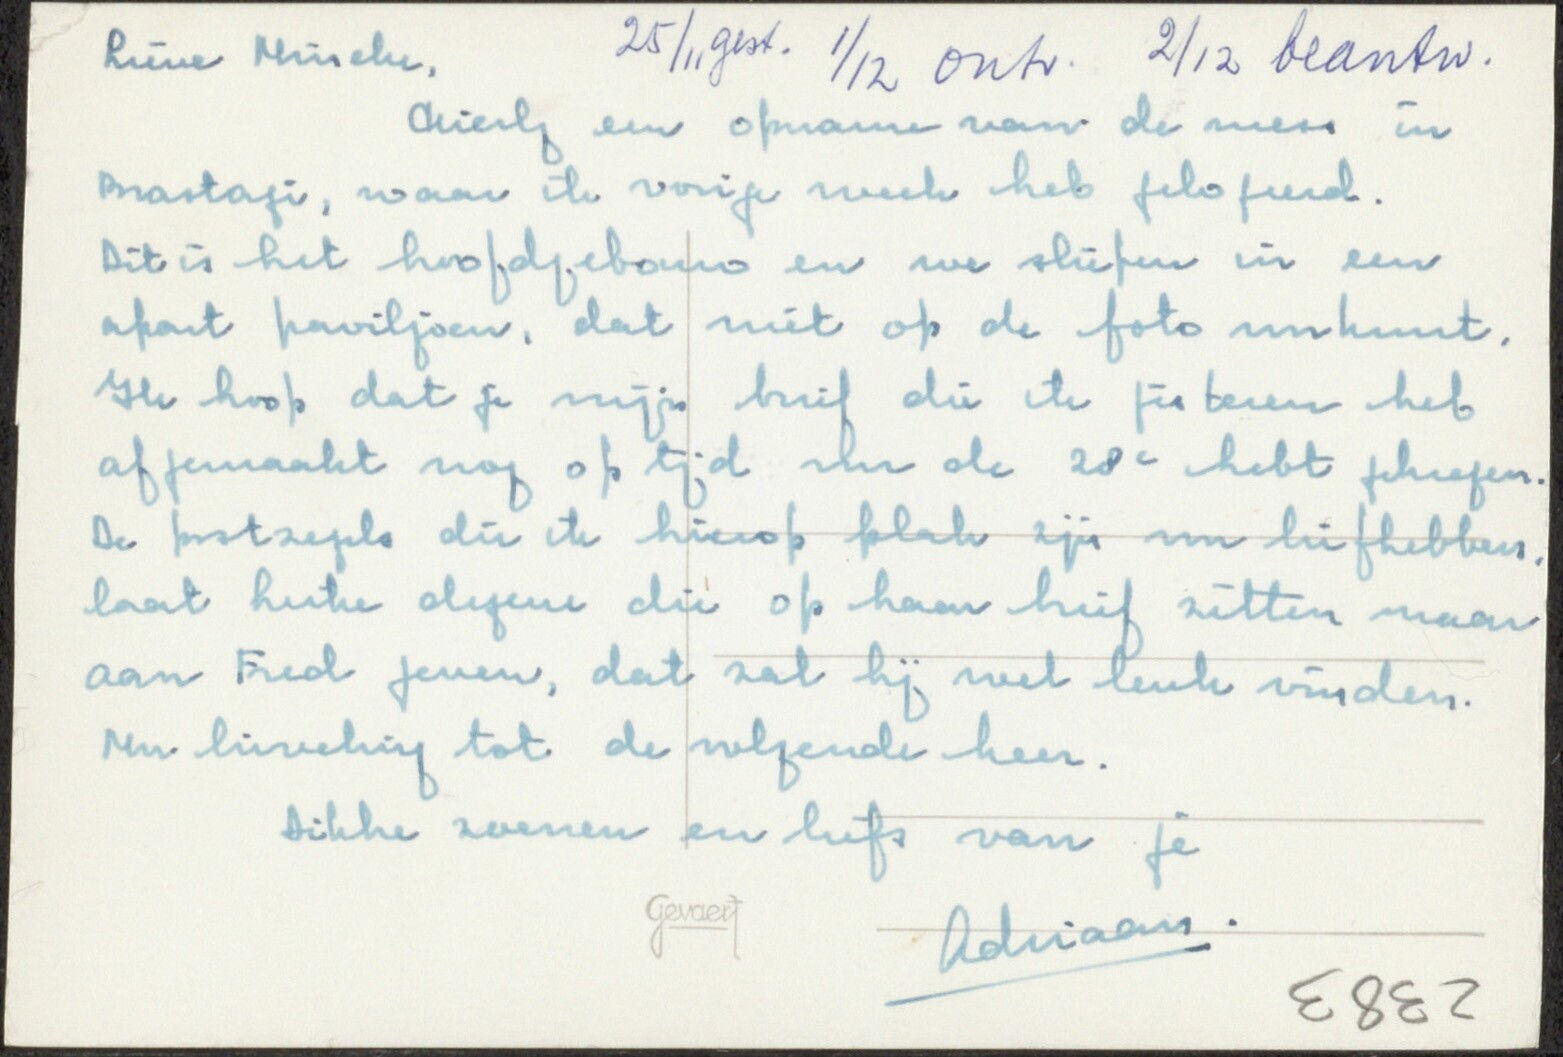 Lieve Mineke,
25/11 gest. 1/12 ontv. 2/12 beantw.
Hierbij een opname van de mess in
Brastagi, waar ik vorige week heb gelogeerd.
Dit is het hoofdgebouw en we sliepen in een
apart paviljoen, dat niet op de foto voorkomt.
Ik hoop dat je mijn brief die ik gisteren heb
afgemaakt nog op tijd voor de 28e hebt gekregen.
De postzegels die ik hierop plak zijn voor liefhebbers,
laat degene die op haar brief zitten maar
aan Fred geven, dat zal hij wel leuk vinden.
Nu lieveling tot de volgende keer.
Dikke zoenen en liefs van je
Adriaan.
Gevaert
2383